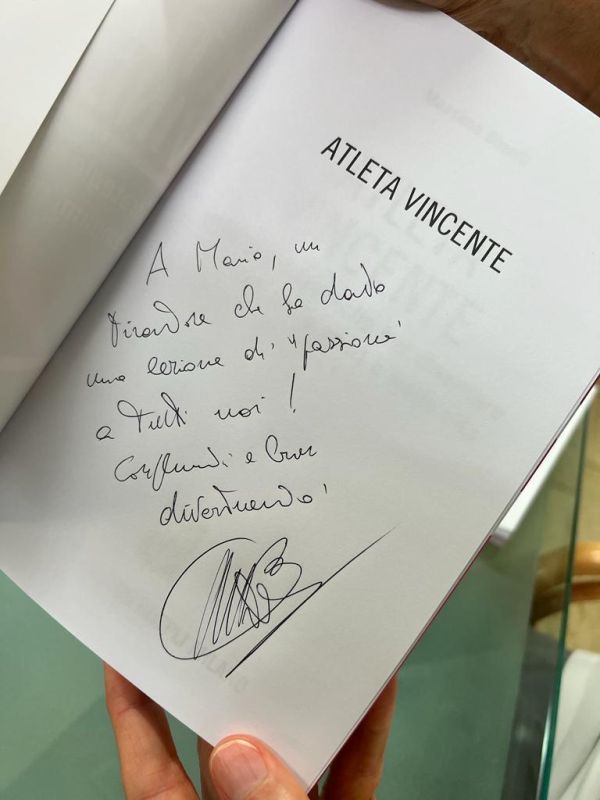 ATLETA VINCENTE
A Mario, un
tiratore che ha dato
una lezione di "passione"
a tutti noi!
Complimenti e buon
divertimento!